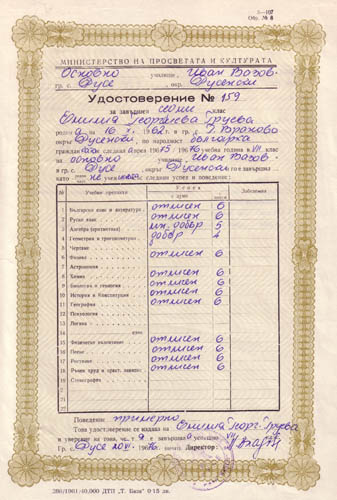 3—107
Обр. № 8
МИНИСТЕРСТВО НА ПРОСВЕТАТА И КУЛТУРАТА
Основно училище „Иван Вазов“
гр. с. Русе, окр. Русенски
Удостоверение № 159
за завършен седми клас
Емилия Георгиева Груева
родена на 16 X. 1962 г. в гр. с. Д. Враново
окр. Русенски, по народност българка
следвал през 1975/1976 учебна година в VII клас
на основно училище „Иван Вазов“
в гр. с. Русе, окр. Русенски и завърши
като не следния успех и поведение:
№ Учебни предмети Успех Забележка
с думи
1 Български език и литература отличен 6
2 Руски език отличен 6
3 Алгебра (аритметика) мн. добър 5
4 Геометрия и тригонометрия добър 4
5 Чертане
6 Физика отличен 6
7 Астрономия
8 Химия отличен 6
9 Биология и геология отличен 6
10 История и Конституция отличен 6
11 География отличен 6
12 Психология
13 Логика
14 език
15 Физическо възпитание отличен 6
16 Пеене отличен 6
17 Рисуване отличен 6
18 Ръчен труд и практ. занятия отличен 6
19 Стенография
20
21
Поведение примерно
Това удостоверение се издава на Емилия Георг. Груева
в уверение на това, че т. я е завършила успешно VII
Гр. с. Русе 20.VI. 1976 Директор:
380/1961/40,000 ДТП „Т. База“ 0·15 лв.